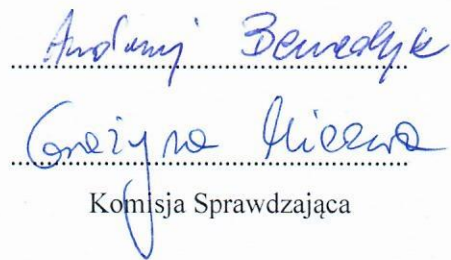 Andrzej Benedyk
Grażyna
Komisja Sprawdzająca